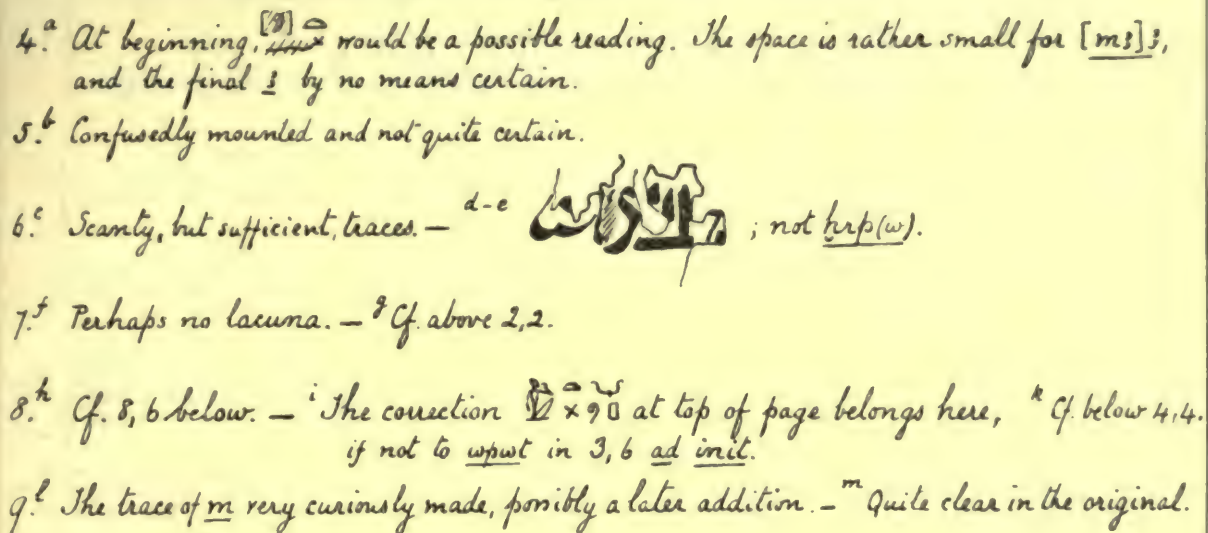 4.a At beginning, would be a possible reading. The space is rather small for [mꜣ]ꜣ,
and the final ꜣ by no means certain.
5.b Confusedly mounted and not quite certain.
6.c Scanty, but sufficient, traces. — d-e ; not ḫrp(w).
7.f Perhaps no lacuna. — g Cf. above 2,2.
8.h Cf. 8, 6 below. — i The correction at top of page belongs here, k Cf. below 4,4.
if not to wpwt in 3, 6 ad init.
9.l The trace of m very curiously made, possibly a later addition. — m Quite clear in the original.